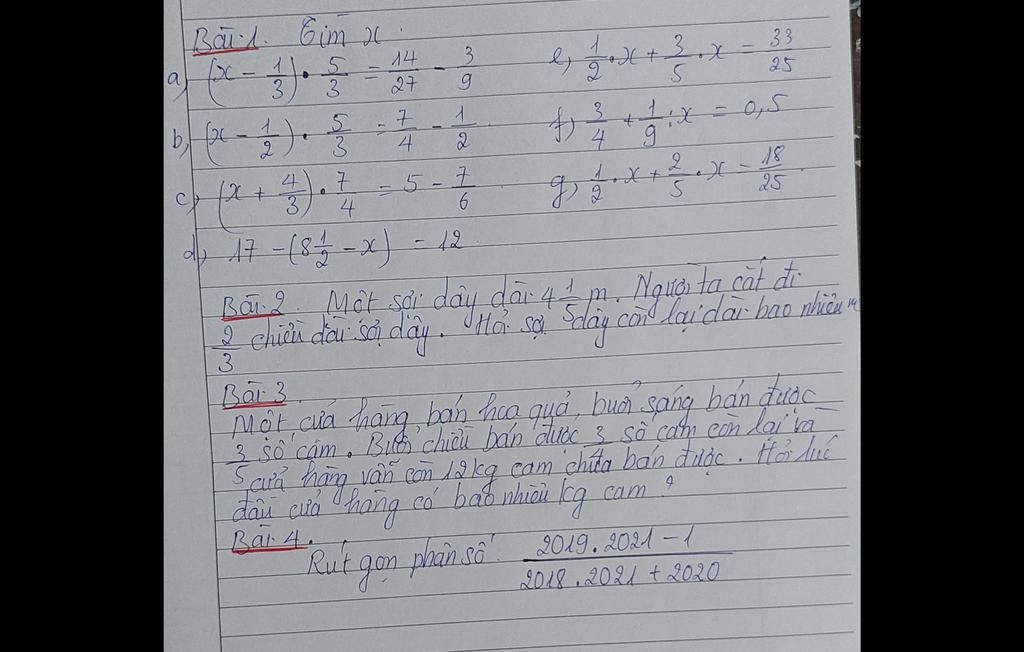 Bài 1. Tìm x.
a) (x - 1/3) . 5/3 = 14/27 - 3/9
e) 1/2 . x + 3/5 . x = 33/25
b) (x - 1/2) . 5/3 = 7/4 - 1/2
f) 3/4 + 1/9 : x = 0,5
c) (x + 4/3) . 7/4 = 5 - 7/6
g) 1/2 . x + 2/5 . x = 18/25
d) 17 - (8 1/2 - x) = 12
Bài 2. Một sợi dây dài 4 1/5 m. Người ta cắt đi
2/3 chiều dài sợi dây. Hỏi sợi dây còn lại dài bao nhiêu m
Bài 3
Một cửa hàng bán hoa quả, buổi sáng bán được
3/5 số cam. Buổi chiều bán được 3/4 số cam còn lại và
cửa hàng vẫn còn 12kg cam chưa bán được. Hỏi lúc
đầu cửa hàng có bao nhiêu kg cam?
Bài 4.
Rút gọn phân số 2019.2021 - 1 / 2018.2021 + 2020